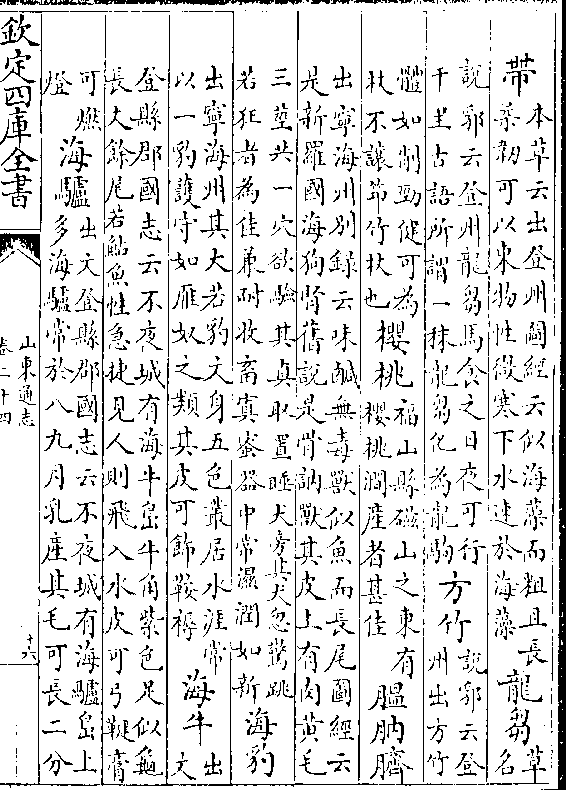 帶
本草云出登州圖經云似海藻而粗且長
葉韌可以束物性微寒下水速於海藻
龍芻
草
名
說郛云登州龍芻馬食之日夜可行
千里古語所謂一秣龍芻化為龍駒
方竹
說郛云登
州出方竹
體如削勁健可為
杖不讓笻竹杖也
櫻桃
福山縣磁山之東有
櫻桃澗産者甚佳
膃肭臍
出寧海州别錄云味鹹無毒獸似魚而長尾圖經云
是新羅國海狗腎舊說是骨訥獸其皮上有肉黄毛
三莖共一穴欲驗其真取置睡犬旁其犬忽驚跳
若狂者為佳兼耐收畜寘密器中常濕潤如新
海豹
出寧海州其大若豹文身五色叢居水涯常
以一豹護守如雁奴之類其皮可飾鞍褥
海牛
出
文
登縣郡國志云不夜城有海牛島牛角紫色足似龜
長丈餘尾若鮎魚性急捷見人則飛入水皮可弓鞬膏
可燃
燈
海驢
出文登縣郡國志云不夜城有海驢島上
多海驢常於八九月乳産其毛可長二分
欽定四庫全書
山東通志
卷二十四
十六